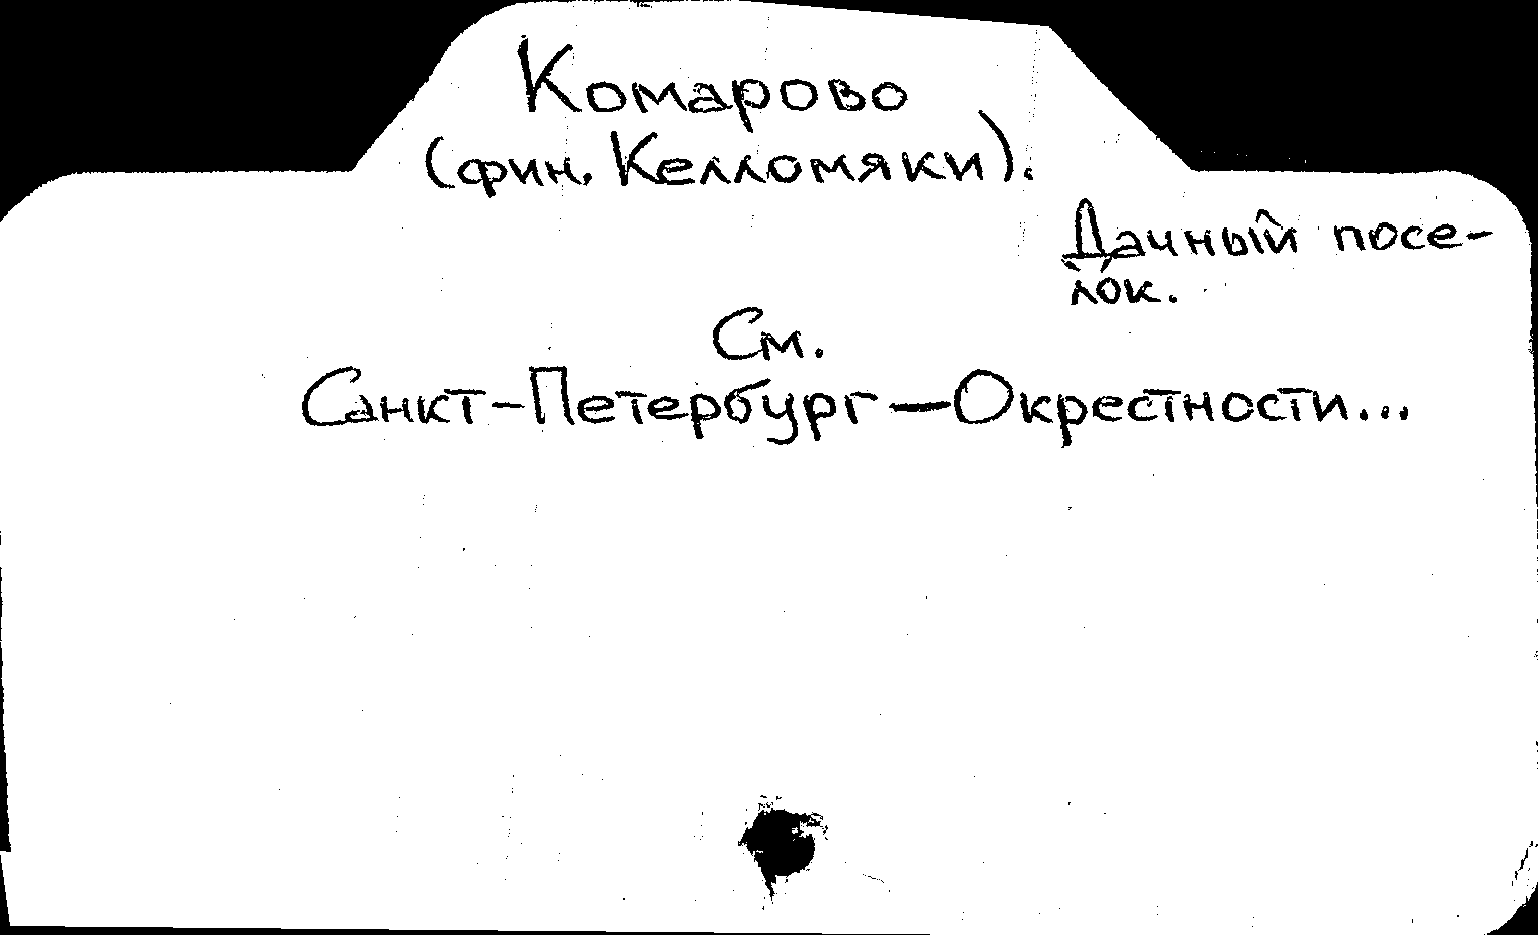 Комарово
(фин. Келломяки).
Дачный посе-
лок.
См.
Санкт-Петербург—Окрестности...